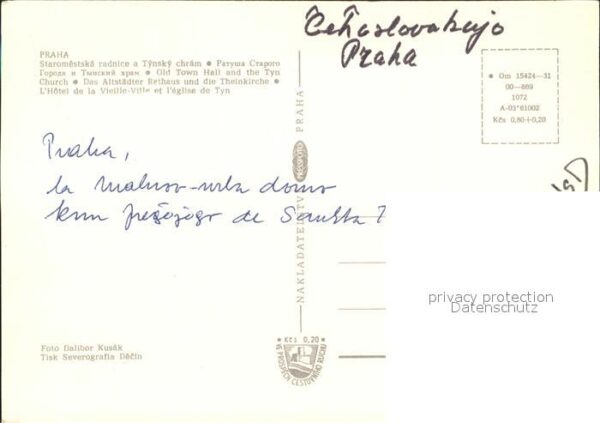 Čeĥoslovakujo
Praha
PRAHA
Staroměstská radnice a Týnský chrám • Ратуша Старого
Города и Тынский храм • Old Town Hall and the Tyn
Church • Das Altstädter Rathaus und die Theinkirche •
L'Hôtel de la Vieille-Ville et l'église de Tyn
• Om 15424—31
00—889
1072
A-03*61002
Kčs 0,80+0,20
Praha,
la Malnov-urba domo
kun preĝejo de Sankta
NAKLADATELSTVÍ PRESSFOTO PRAHA
privacy protection
Datenschutz
Foto Dalibor Kusák
Tisk Severografia Děčín
* Kčs 0,20 *
VE PROSPĚCH CESTOVNÍHO RUCHU